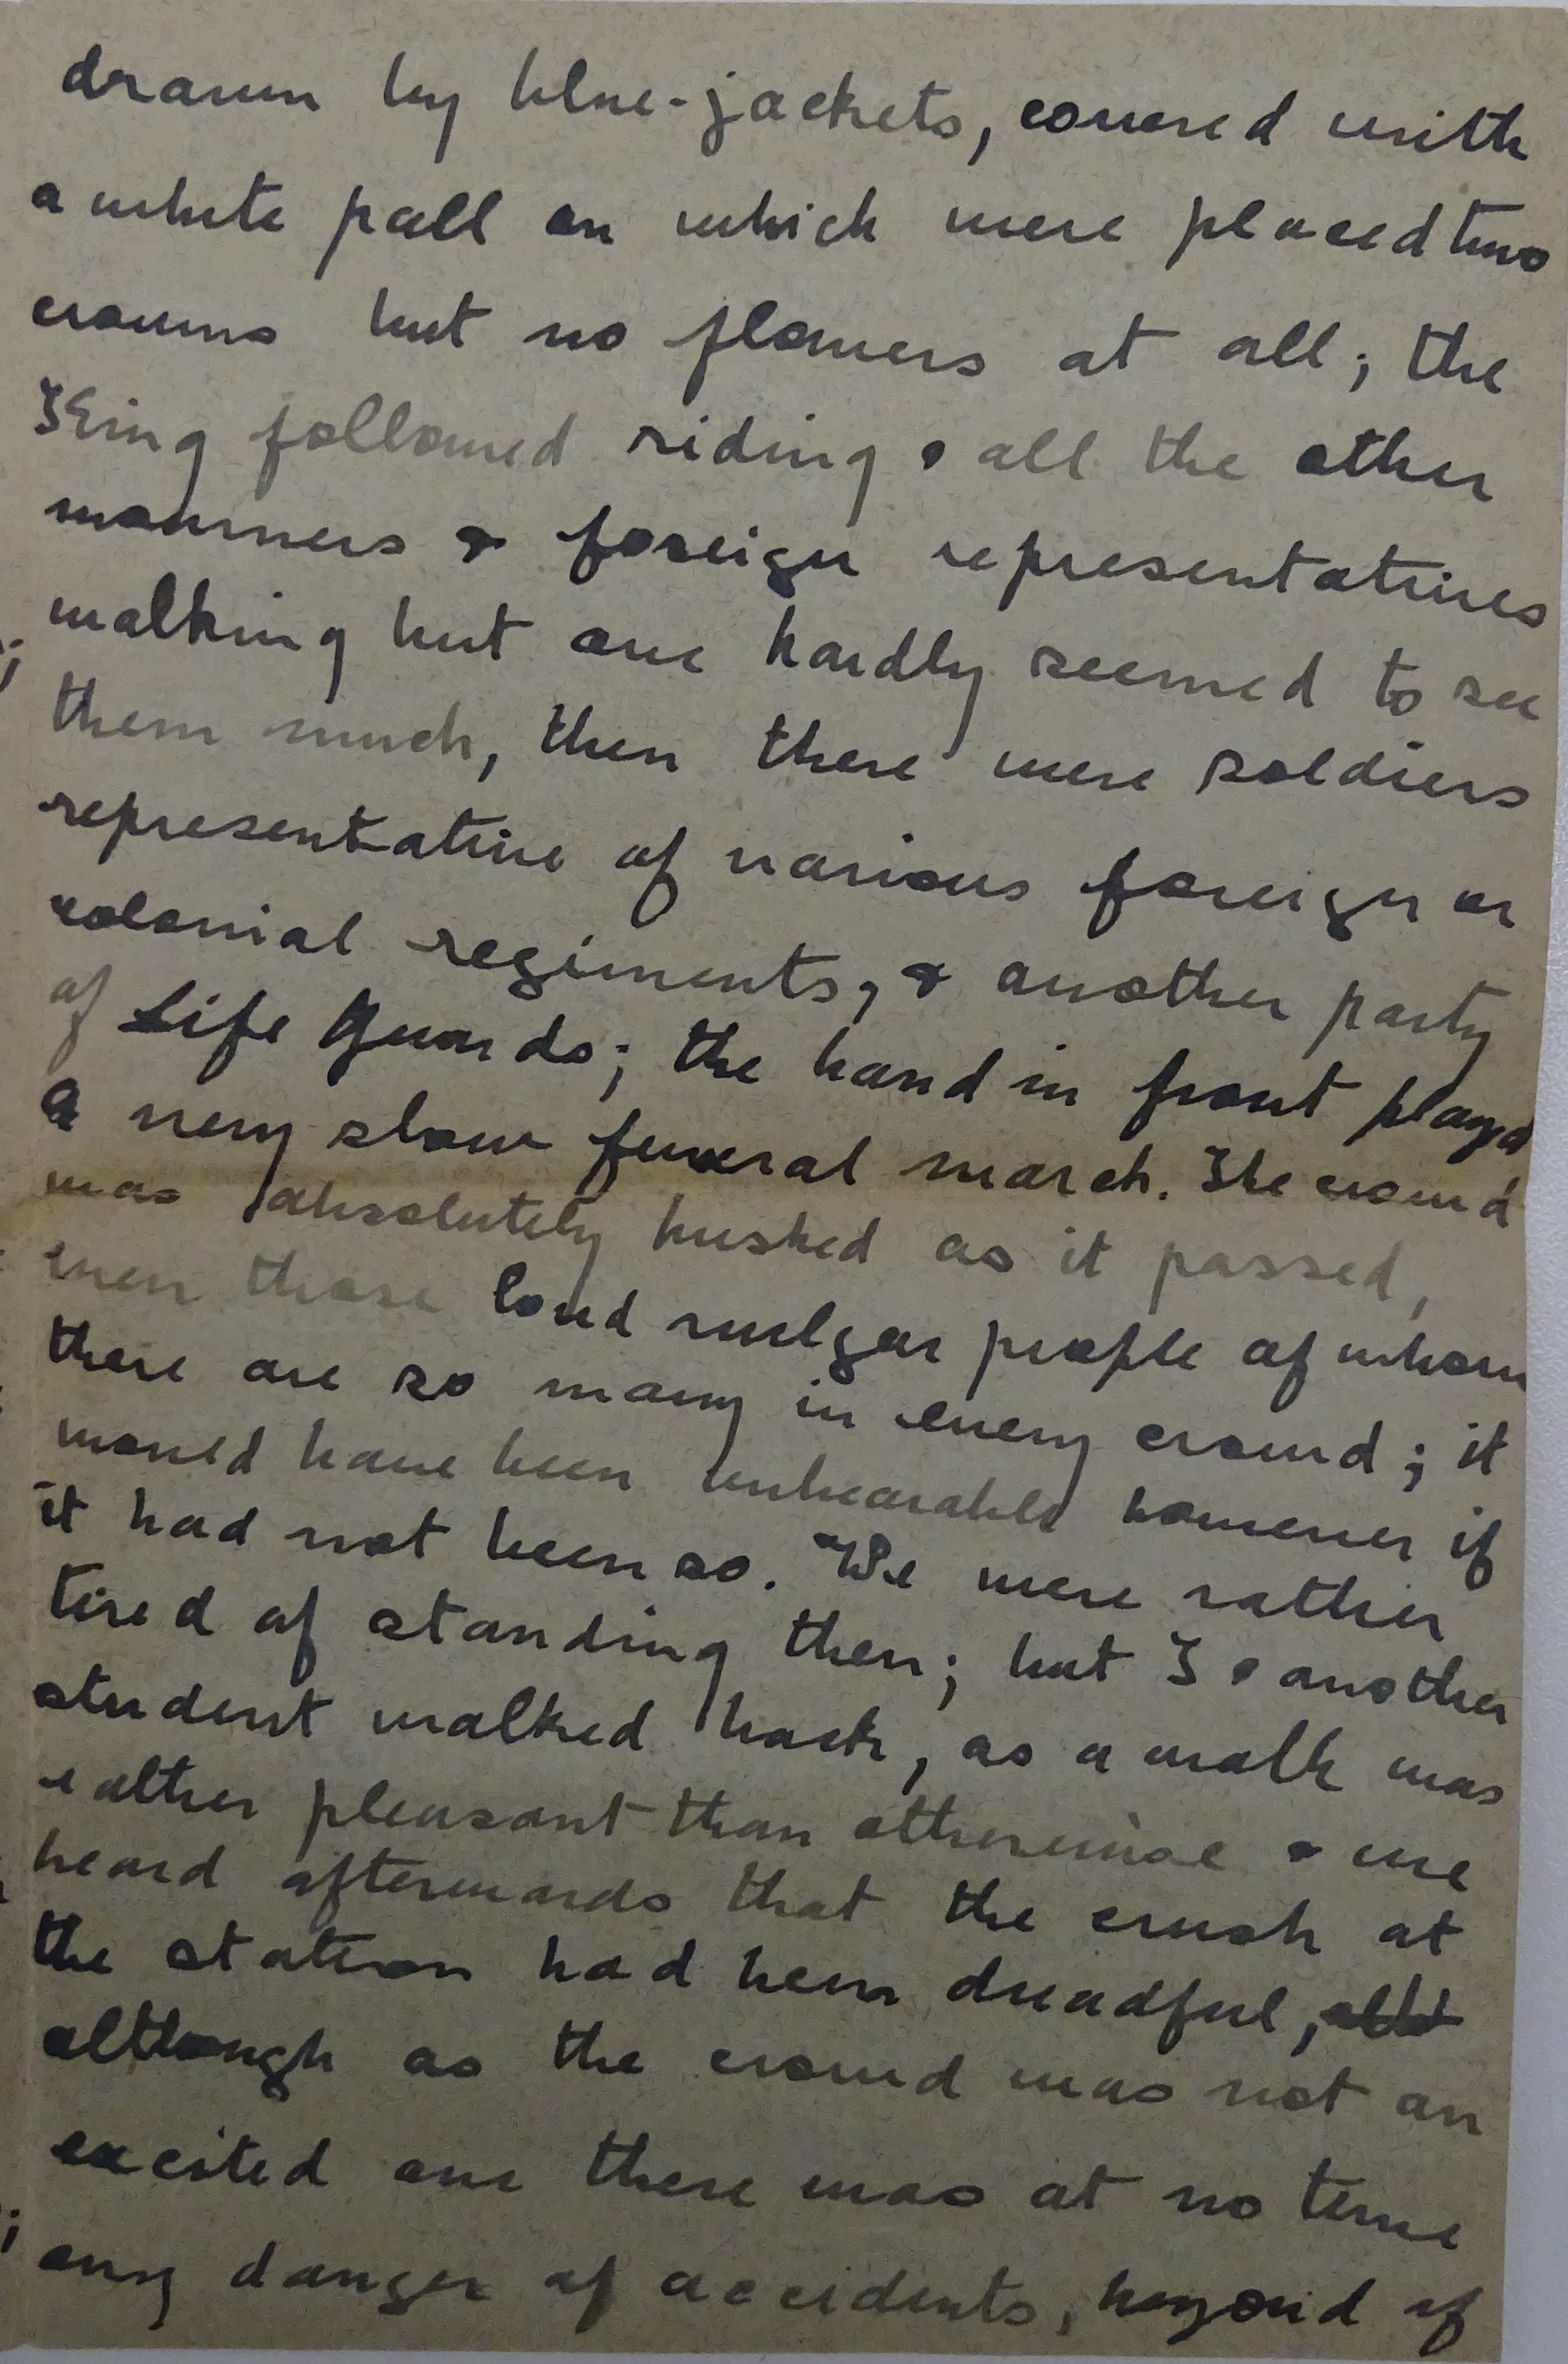 drawn by blue-jackets, covered with
a white pall on which were placed two
crowns but no flowers at all; the
King followed riding & all the other
mourners & foreign representatives
walking but one hardly seemed to see
them much, then there were soldiers
representative of various foreign or
colonial regiments, & another party
of Life Guards; the band in front played
a very slow funeral march. The crowd
was absolutely hushed as it passed,
even those loud vulgar people of whom
there are so many in every crowd; it
would have been unbearable however if
it had not been so. We were rather
tired of standing then; but I & another
student walked back, as a walk was
rather pleasant than otherwise & we
heard afterwards that the crush at
the station had been dreadful,
although as the crowd was not an
excited one there was at no time
any danger of accidents, beyond of